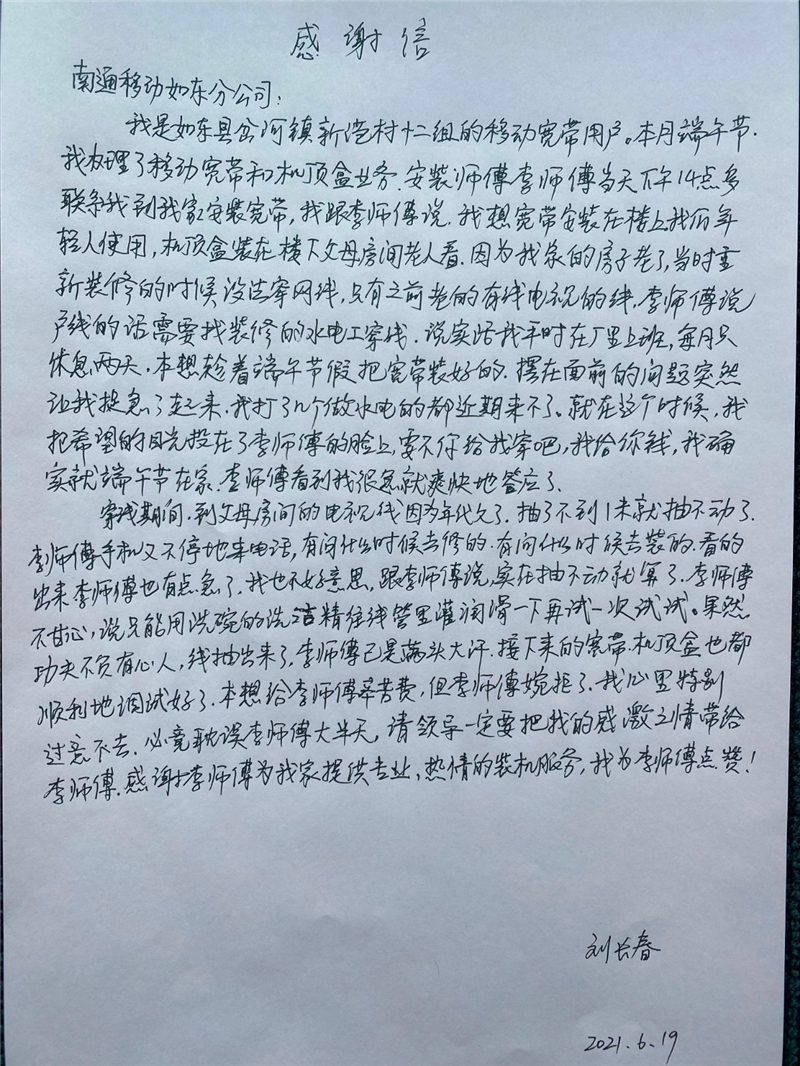 感谢信
南通移动如东分公司:
我是如东县岔河镇新港村十二组的移动宽带用户。本月端午节.
我办理了移动宽带和机顶盒业务.安装师傅李师傅当天下午14点多
联系我到我家安装宽带,我跟李师傅说.我想宽带安装在楼上我们年
轻人使用,机顶盒装在楼下父母房间老人看.因为我家的房子老了,当时重
新装修的时候没法穿网线,只有之前老的有线电视的线,李师傅说
户线的话需要找装修的水电工穿线.说实话我平时在厂里上班,每月只
休息两天.本想趁着端午节假把宽带装好的.摆在面前的问题突然
让我捉急了起来.我打了几个做水电的都近期来不了.就在这个时候,我
把希望的目光投在了李师傅的脸上,要不你给我穿吧,我给你钱,我确
实就端午节在家.李师傅看到我很急就爽快地答应了.
穿线期间.到父母房间的电视线因为年代久了.抽了不到1米就抽不动了.
李师傅手机又不停地来电话,有问什么时候去修的.有问什么时候去装的.看的
出来李师傅也有点急了.我也不好意思,跟李师傅说,实在抽不动就算了.李师傅
不甘心,说只能用洗碗的洗洁精往线管里灌润滑一下再试一次试试。果然
功夫不负有心人,线抽出来了.李师傅已是满头大汗.接下来的宽带.机顶盒也都
顺利地调试好了.本想给李师傅辛苦费,但李师傅婉拒了.我心里特别
过意不去.必竟耽误李师傅大半天,请领导一定要把我的感激之情带给
李师傅.感谢李师傅为我家提供专业、热情的装机服务,我为李师傅点赞!
刘长春
2021.6.19